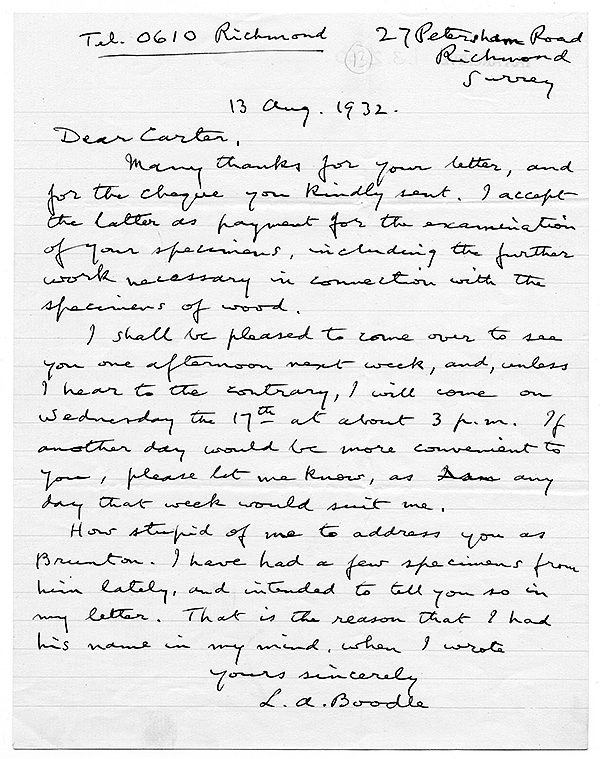 Tel. 0610 Richmond
27 Petersham Road
Richmond
Surrey
(13)
13 Aug. 1932.
Dear Carter,
Many thanks for your letter, and
for the cheque you kindly sent. I accept
the latter as payment for the examination
of your specimens, including the further
work necessary in connection with the
specimens of wood.
I shall be pleased to come over to see
you one afternoon next week, and, unless
I hear to the contrary, I will come on
Wednesday the 17th at about 3 p.m. If
another day would be more convenient to
you, please let me know, as any
day that week would suit me.
How stupid of me to address you as
Brunton. I have had a few specimens from
him lately, and intended to tell you so in
my letter. That is the reason that I had
his name in my mind, when I wrote
Yours sincerely
L. A. Boodle